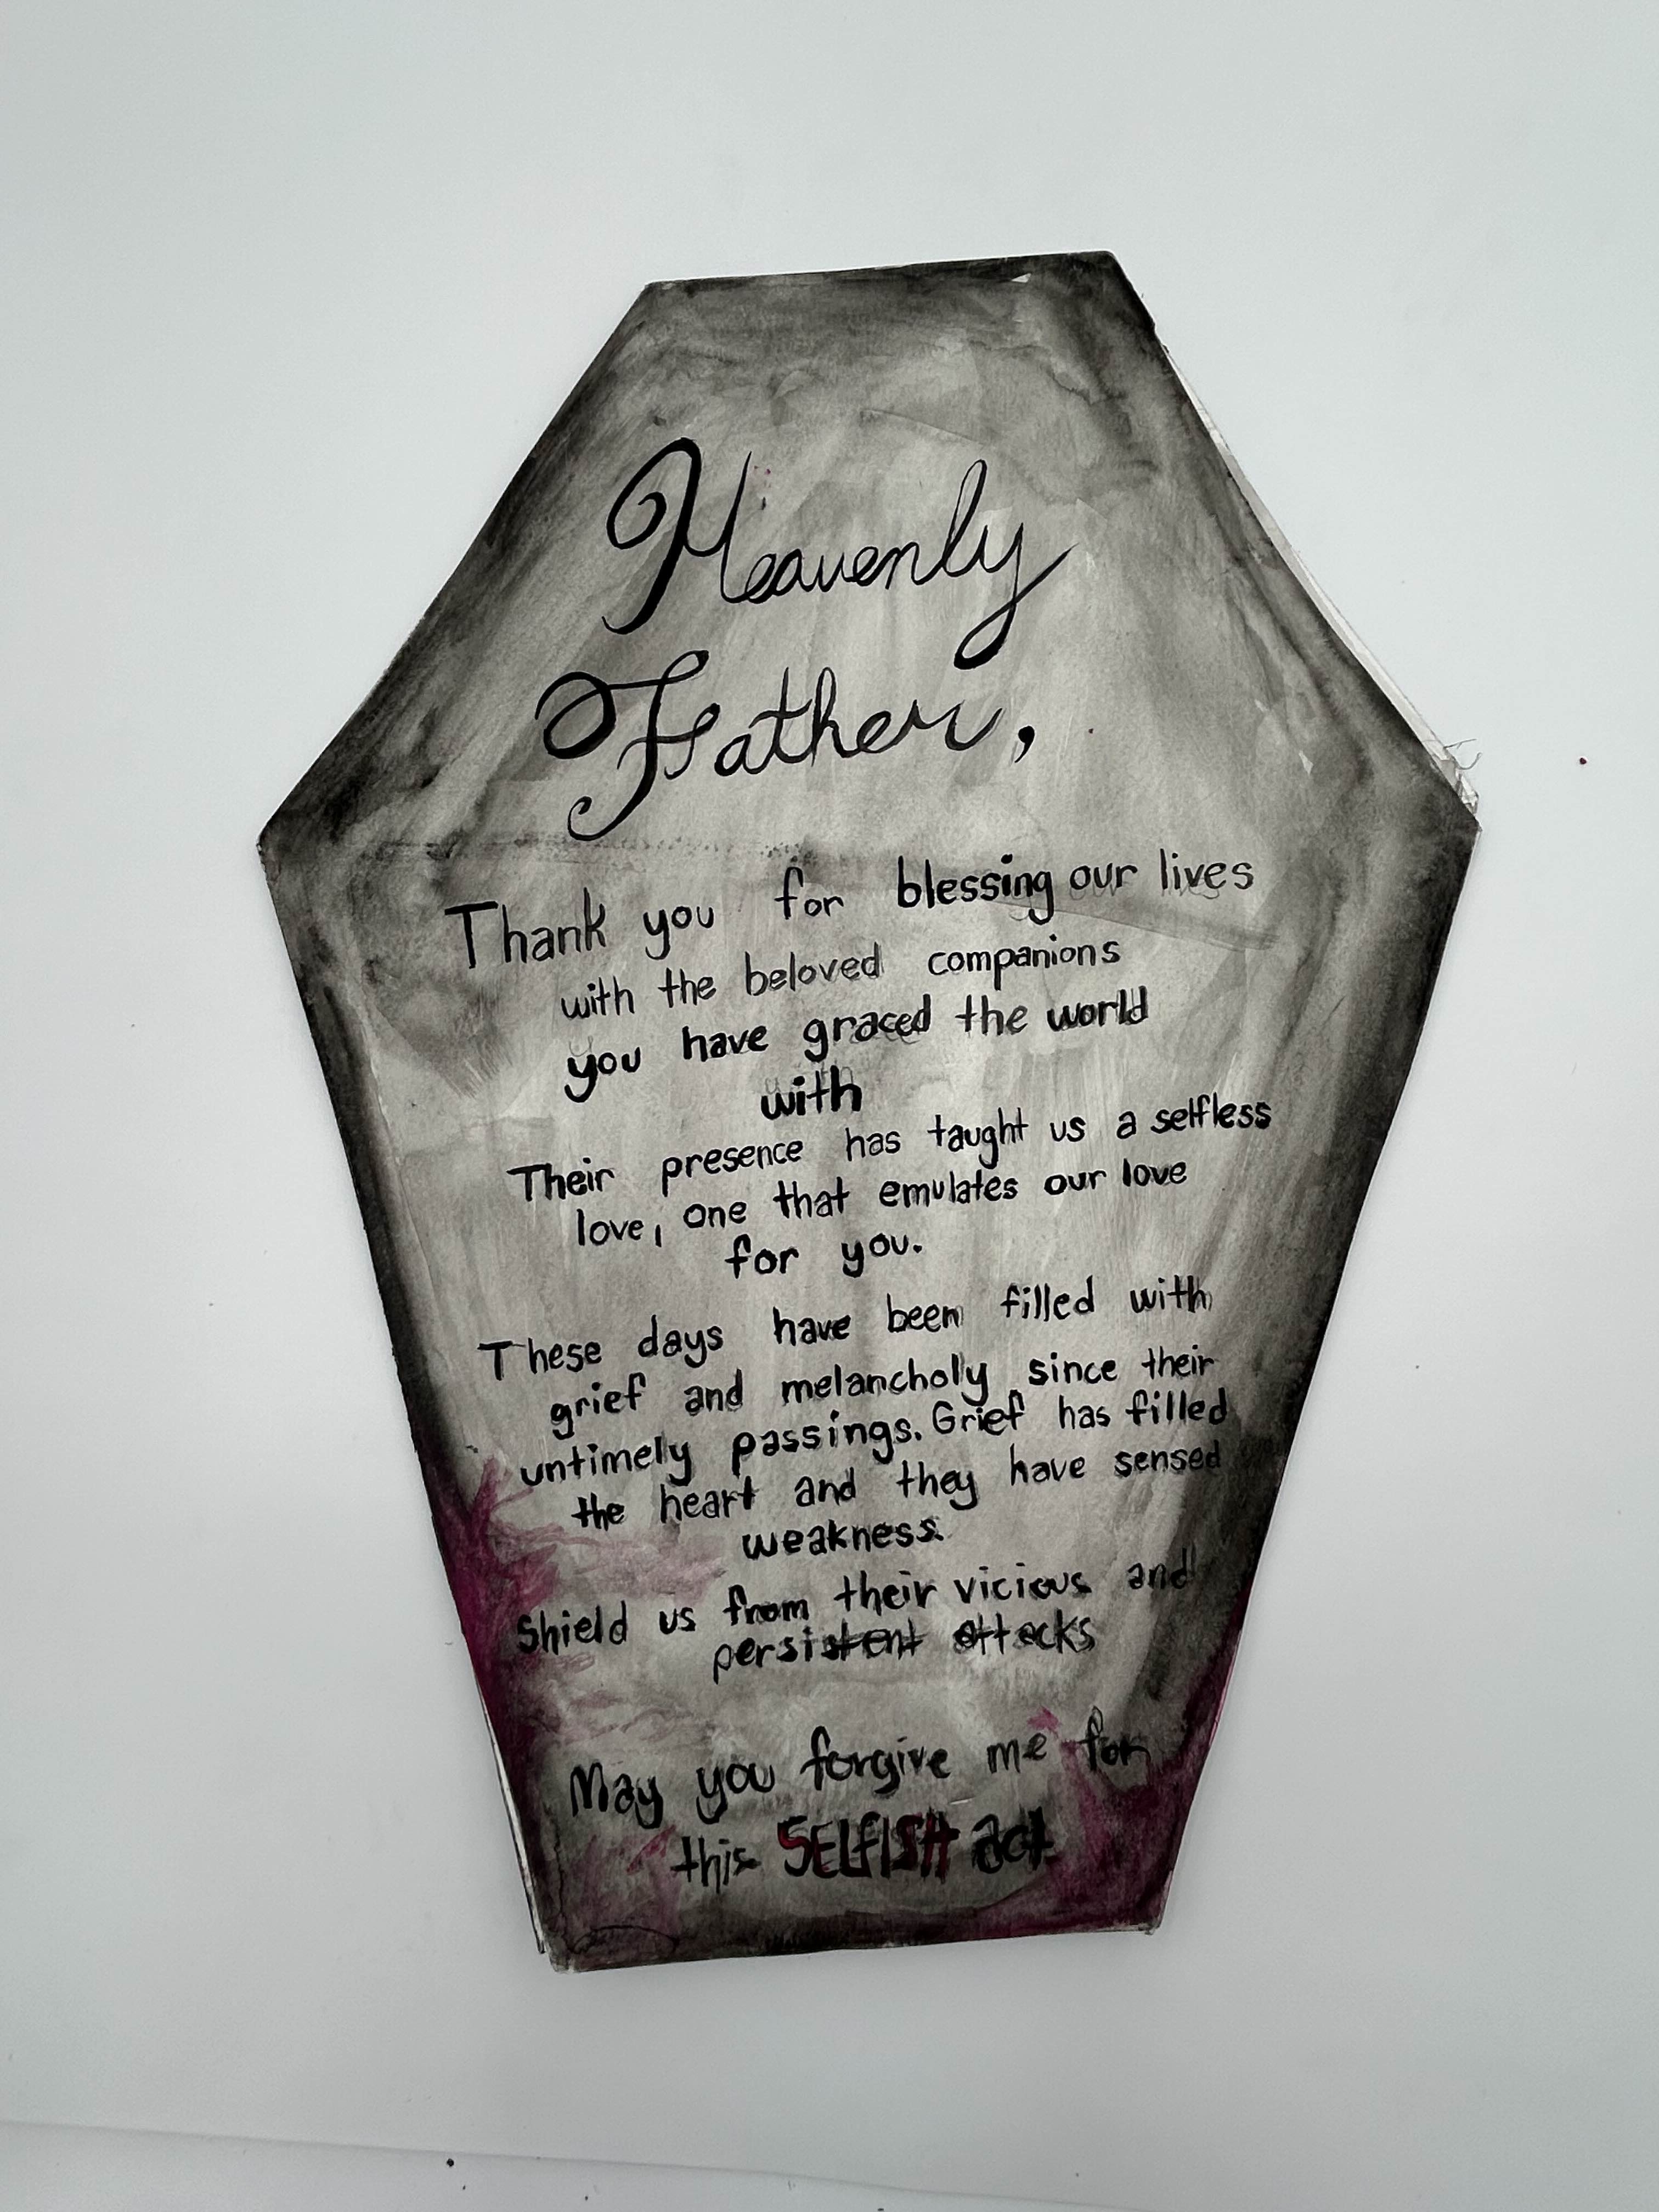 Heavenly
Father,
Thank you for blessing our lives
with the beloved companions
you have graced the world
with
Their presence has taught us a selfless
love, one that emulates our love
for you.
These days have been filled with
grief and melancholy since their
untimely passings. Grief has filled
the heart and they have sensed
weakness.
Shield us from their vicious and
persistent attacks
May you forgive me for
this SELFISH act